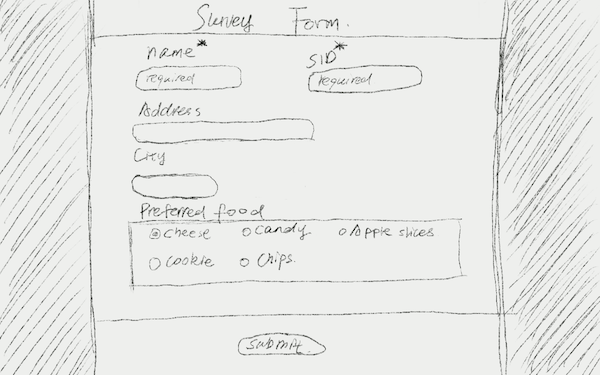 Survey Form.
name* SID*
required required
Address
City
Preferred food
cheese candy Apple slices
cookie chips.
submit.